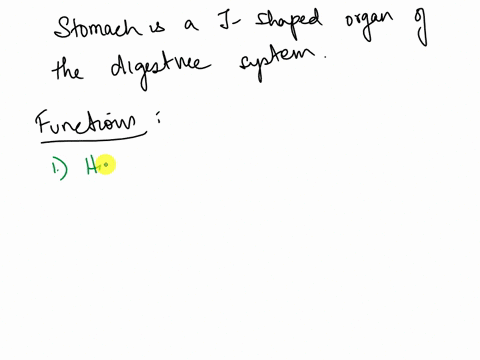 Stomach is a J- shaped organ of
the digestive system.
Functions :
1.) H